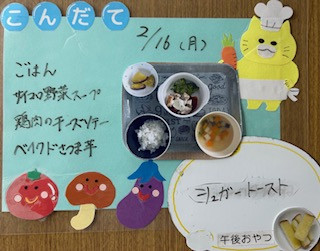 こんだて
2/16(月)
ごはん
サイコロ野菜スープ
鶏肉のチーズソテー
ベイクドさつま芋
シュガートースト
午後おやつ